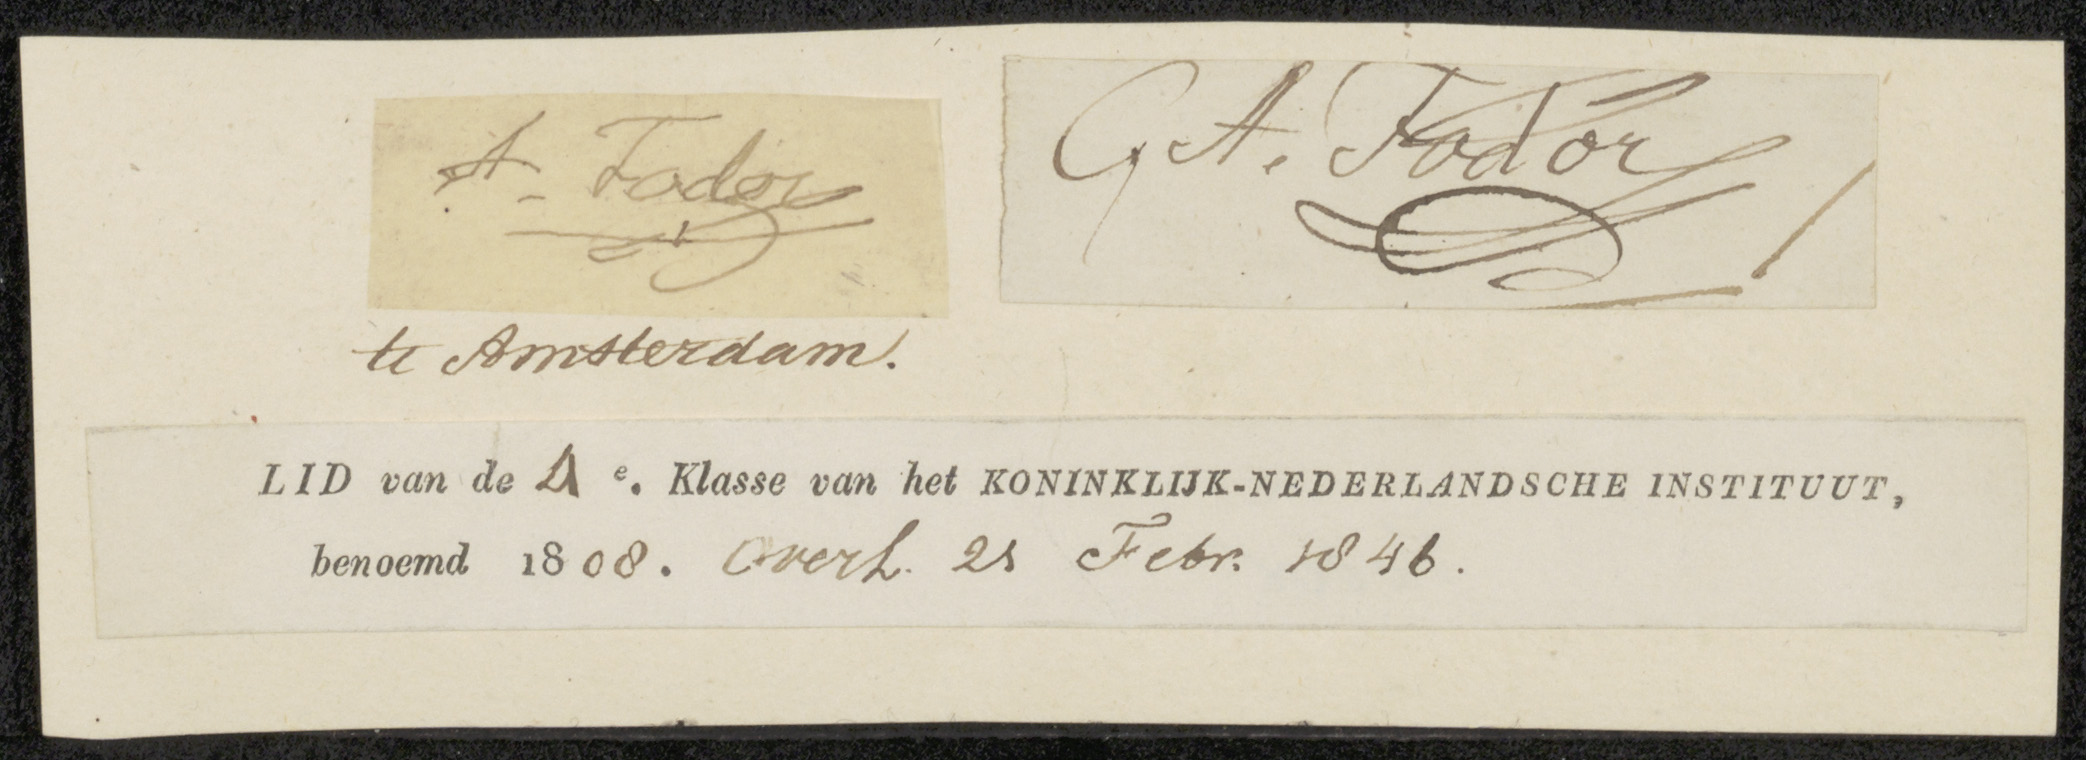 A. Fodor
C. A. Fodor
te Amsterdam.
LID van de 4e. Klasse van het KONINKLIJK-NEDERLANDSCHE INSTITUUT,
benoemd 1808. Overl. 21 Febr. 1846.